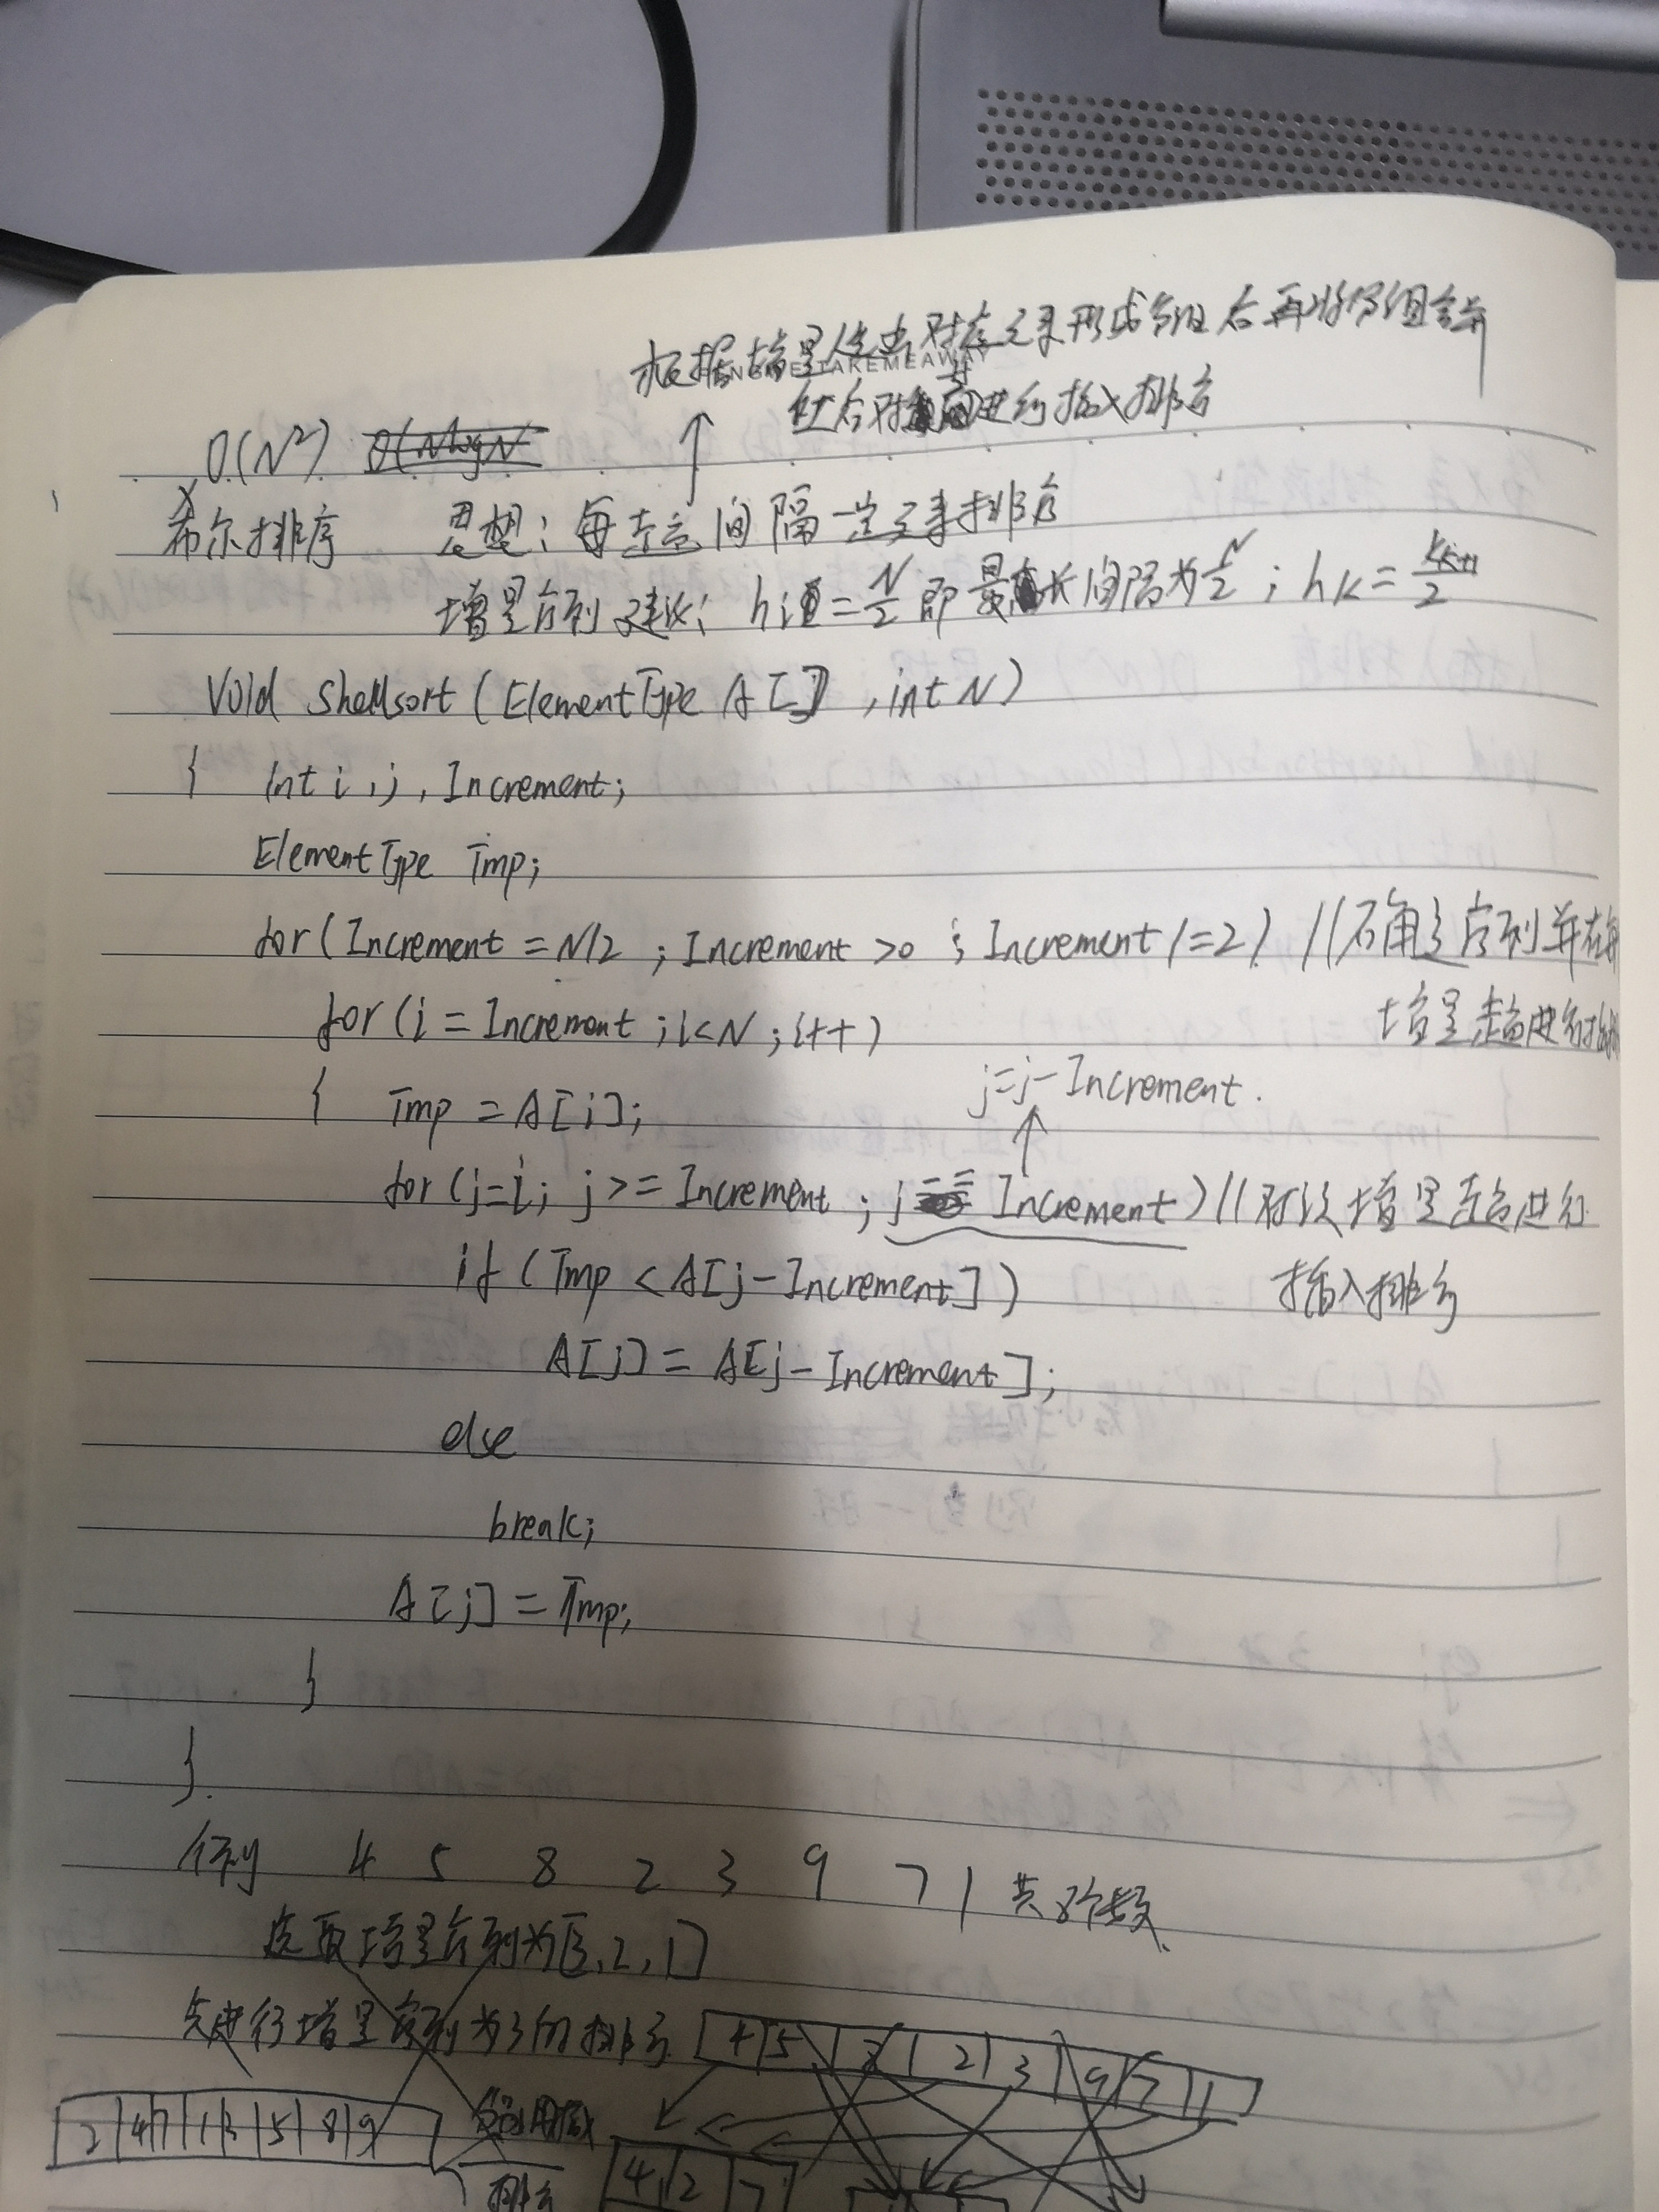 根据增量选出对应元素形成分组后再将分组合并
然后对其进行插入排序
TAKEMEAWAY
O(N²) O(NlogN
希尔排序 思想:每趟间隔一定元素排序
增量序列建议: hi = N/2 即最长间隔为 N/2 ; hk = k+1/2
Void Shellsort (ElementType A[] , int N)
{ int i, j, Increment;
ElementType Tmp;
for (Increment = N/2 ; Increment >0 ; Increment /=2) //确定序列并在每
for (i = Increment ; i<N ; i++) 增量趟进行
j=j-Increment.
{ Tmp = A[i];
for (j=i; j >= Increment ; j -= Increment) //对该增量序列进行
if (Tmp < A[j-Increment]) 插入排序
A[j] = A[j-Increment];
else
break;
A[j] = Tmp;
}
}.
例 4 5 8 2 3 9 7 1 共8个数
选取增量序列为[3,2,1]
先进行增量序列为3的排序 4 5 8 2 3 9 7 1
2 4 7 1 3 5 8 9
排序
4 2 7